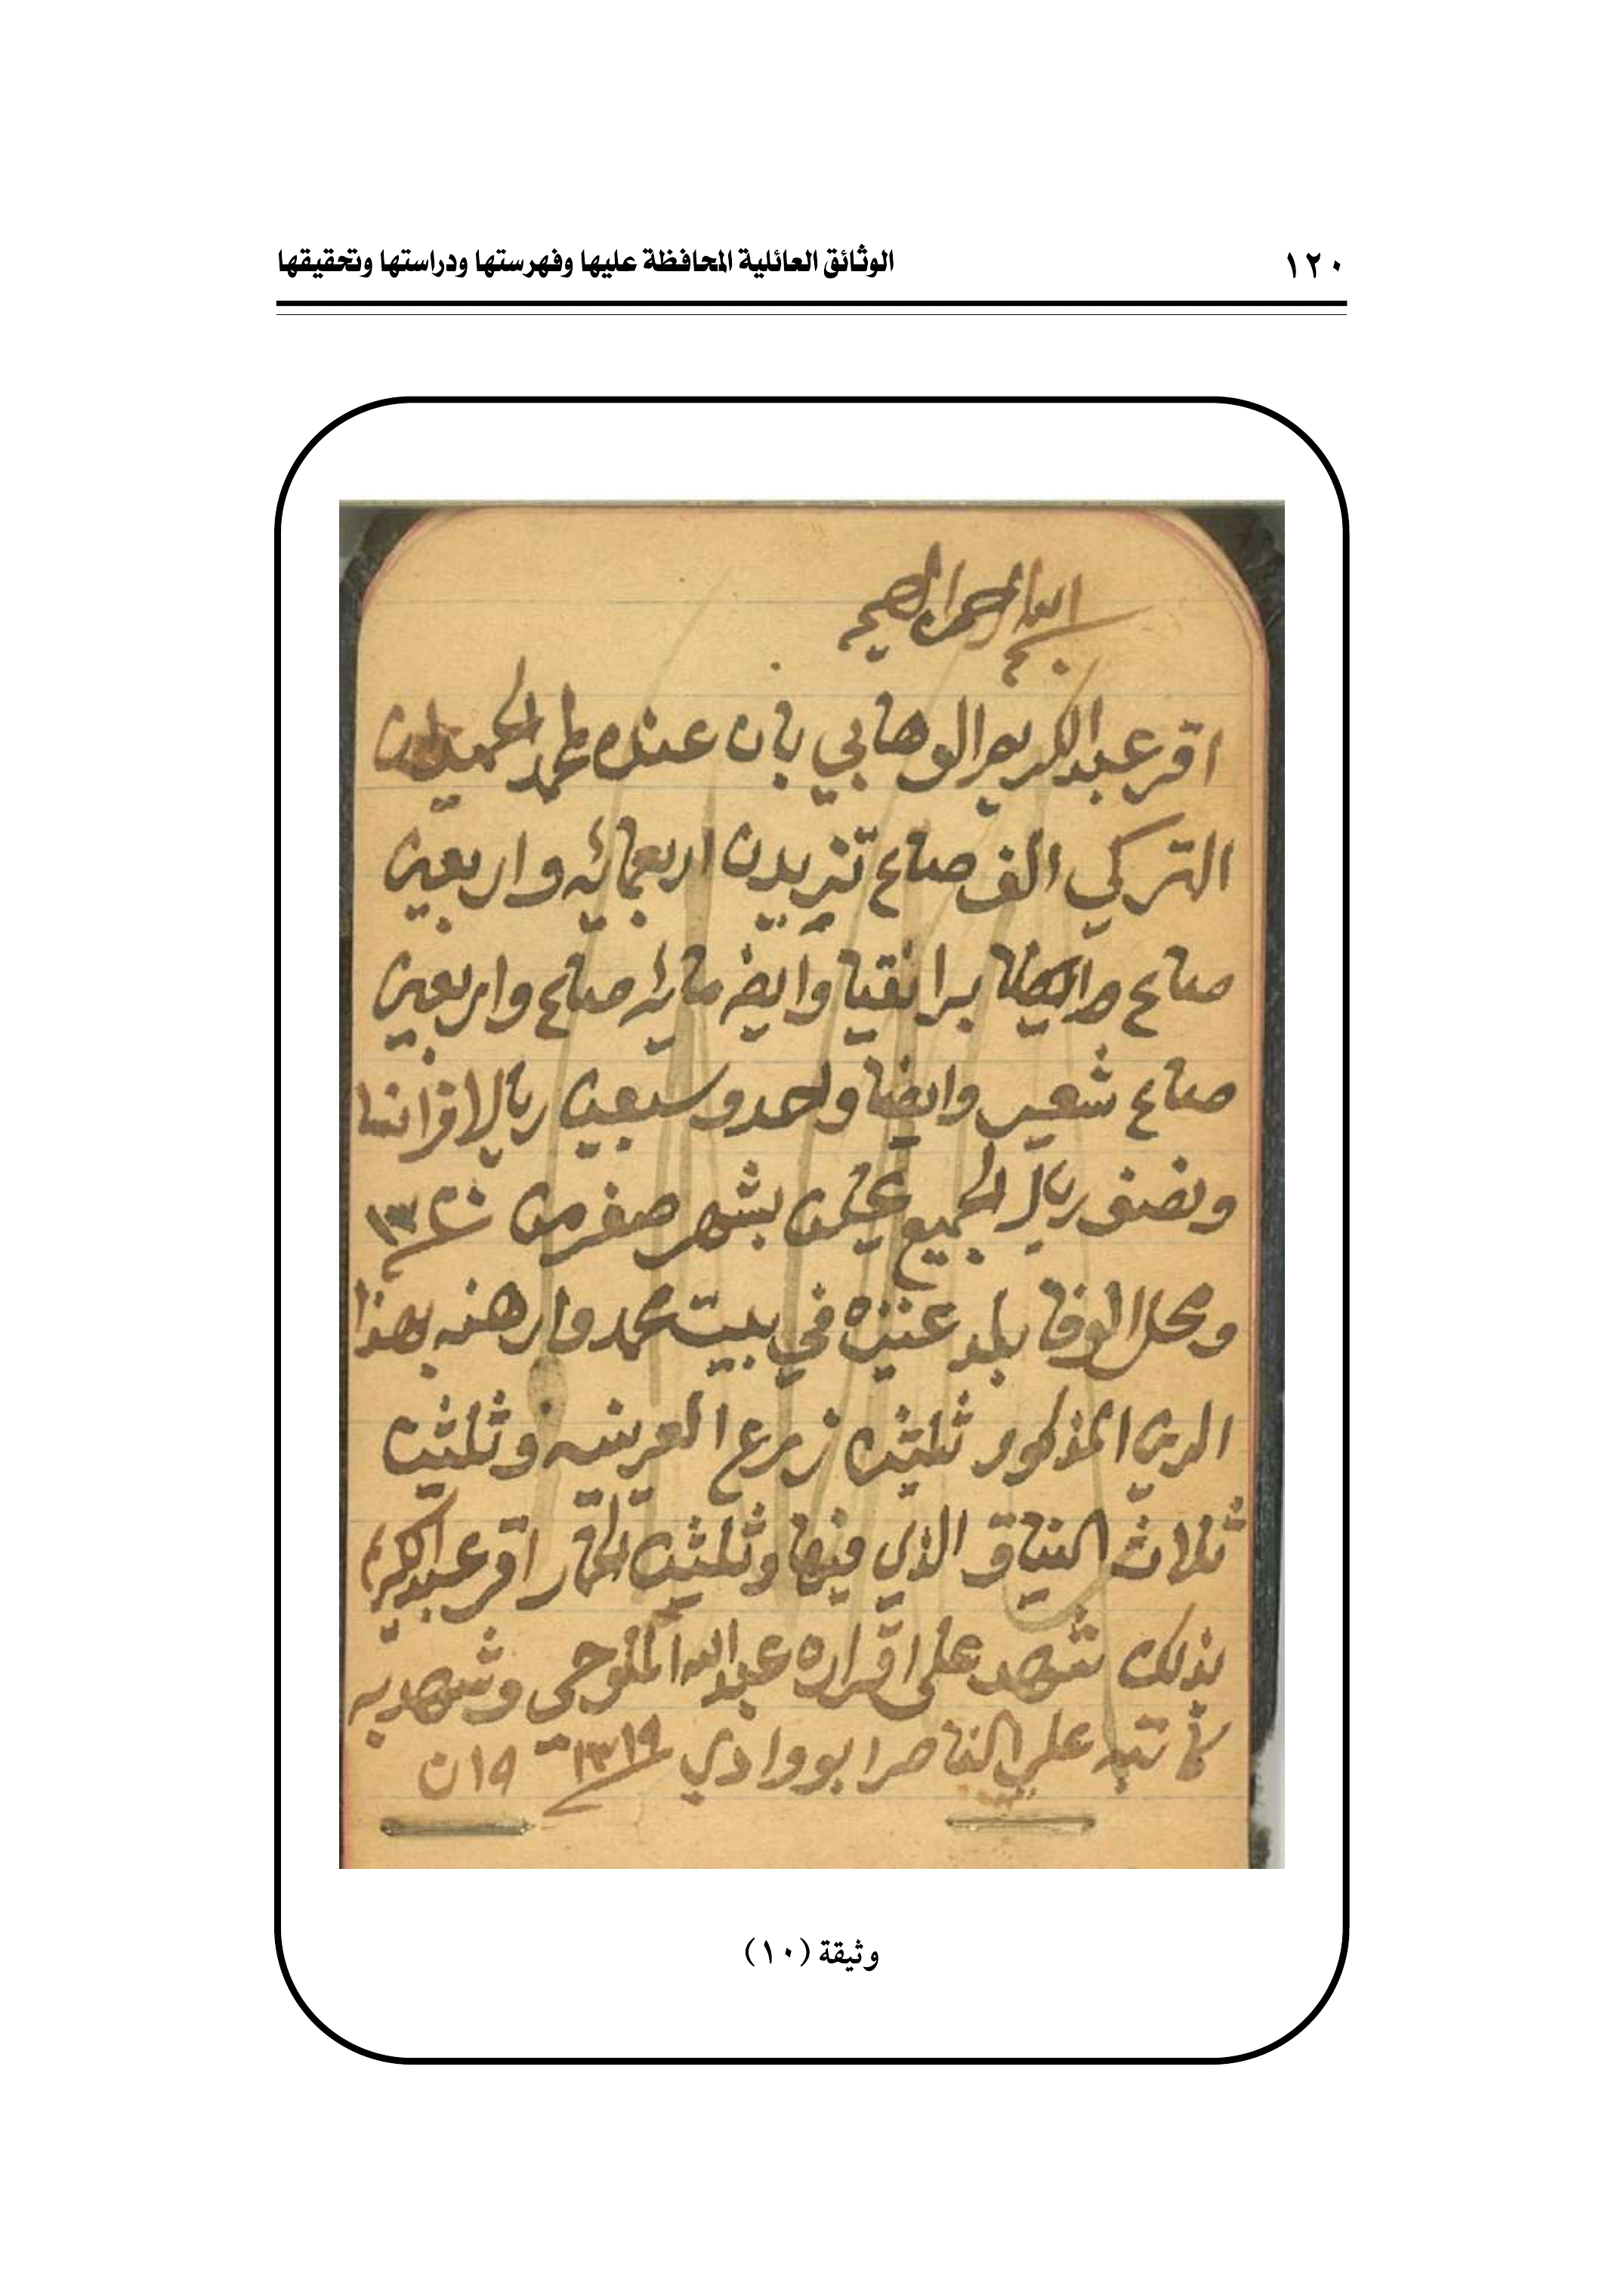 ١٢٠
الوثائق العائلية المحافظة عليها وفهرستها ودراستها وتحقيقها
بسم الله الرحمن الرحيم
اقر عبدالكريم الوهابي بان عنده لمحمد الحميدان
التركي الف صاع تزيدن اربعمائه واربعين
صاع برا نقيا وايضا مايه صاع واربعين
صاع شعير وايضا واحد وسبعين ريالا فرانسا
ونصف ريال الجميع يحلن بشهر صفر من ١٣٢٠
ومحل الوفا بلد عنيزه في بيت محمد وارهنه بهذا
الدين المذكور ثلثين زرع العريسه وثلثين
ثلاث النياق الذي فيها وثلثين الحمار اقر عبدالكريم
بذلك شهد على اقراره عبدالله الملوحي وشهد به
كاتبه علي الناصر ابو وادي ١٣١٩ ١٥ ن
وثيقة (١٠)